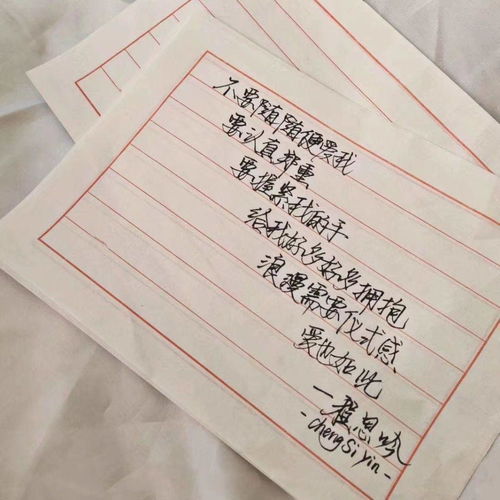 不要随随便爱我
要认真郑重
要握紧我的手
给我好多好多拥抱
浪漫需要仪式感
爱也如此
一程思吟
-cheng Si Yin-